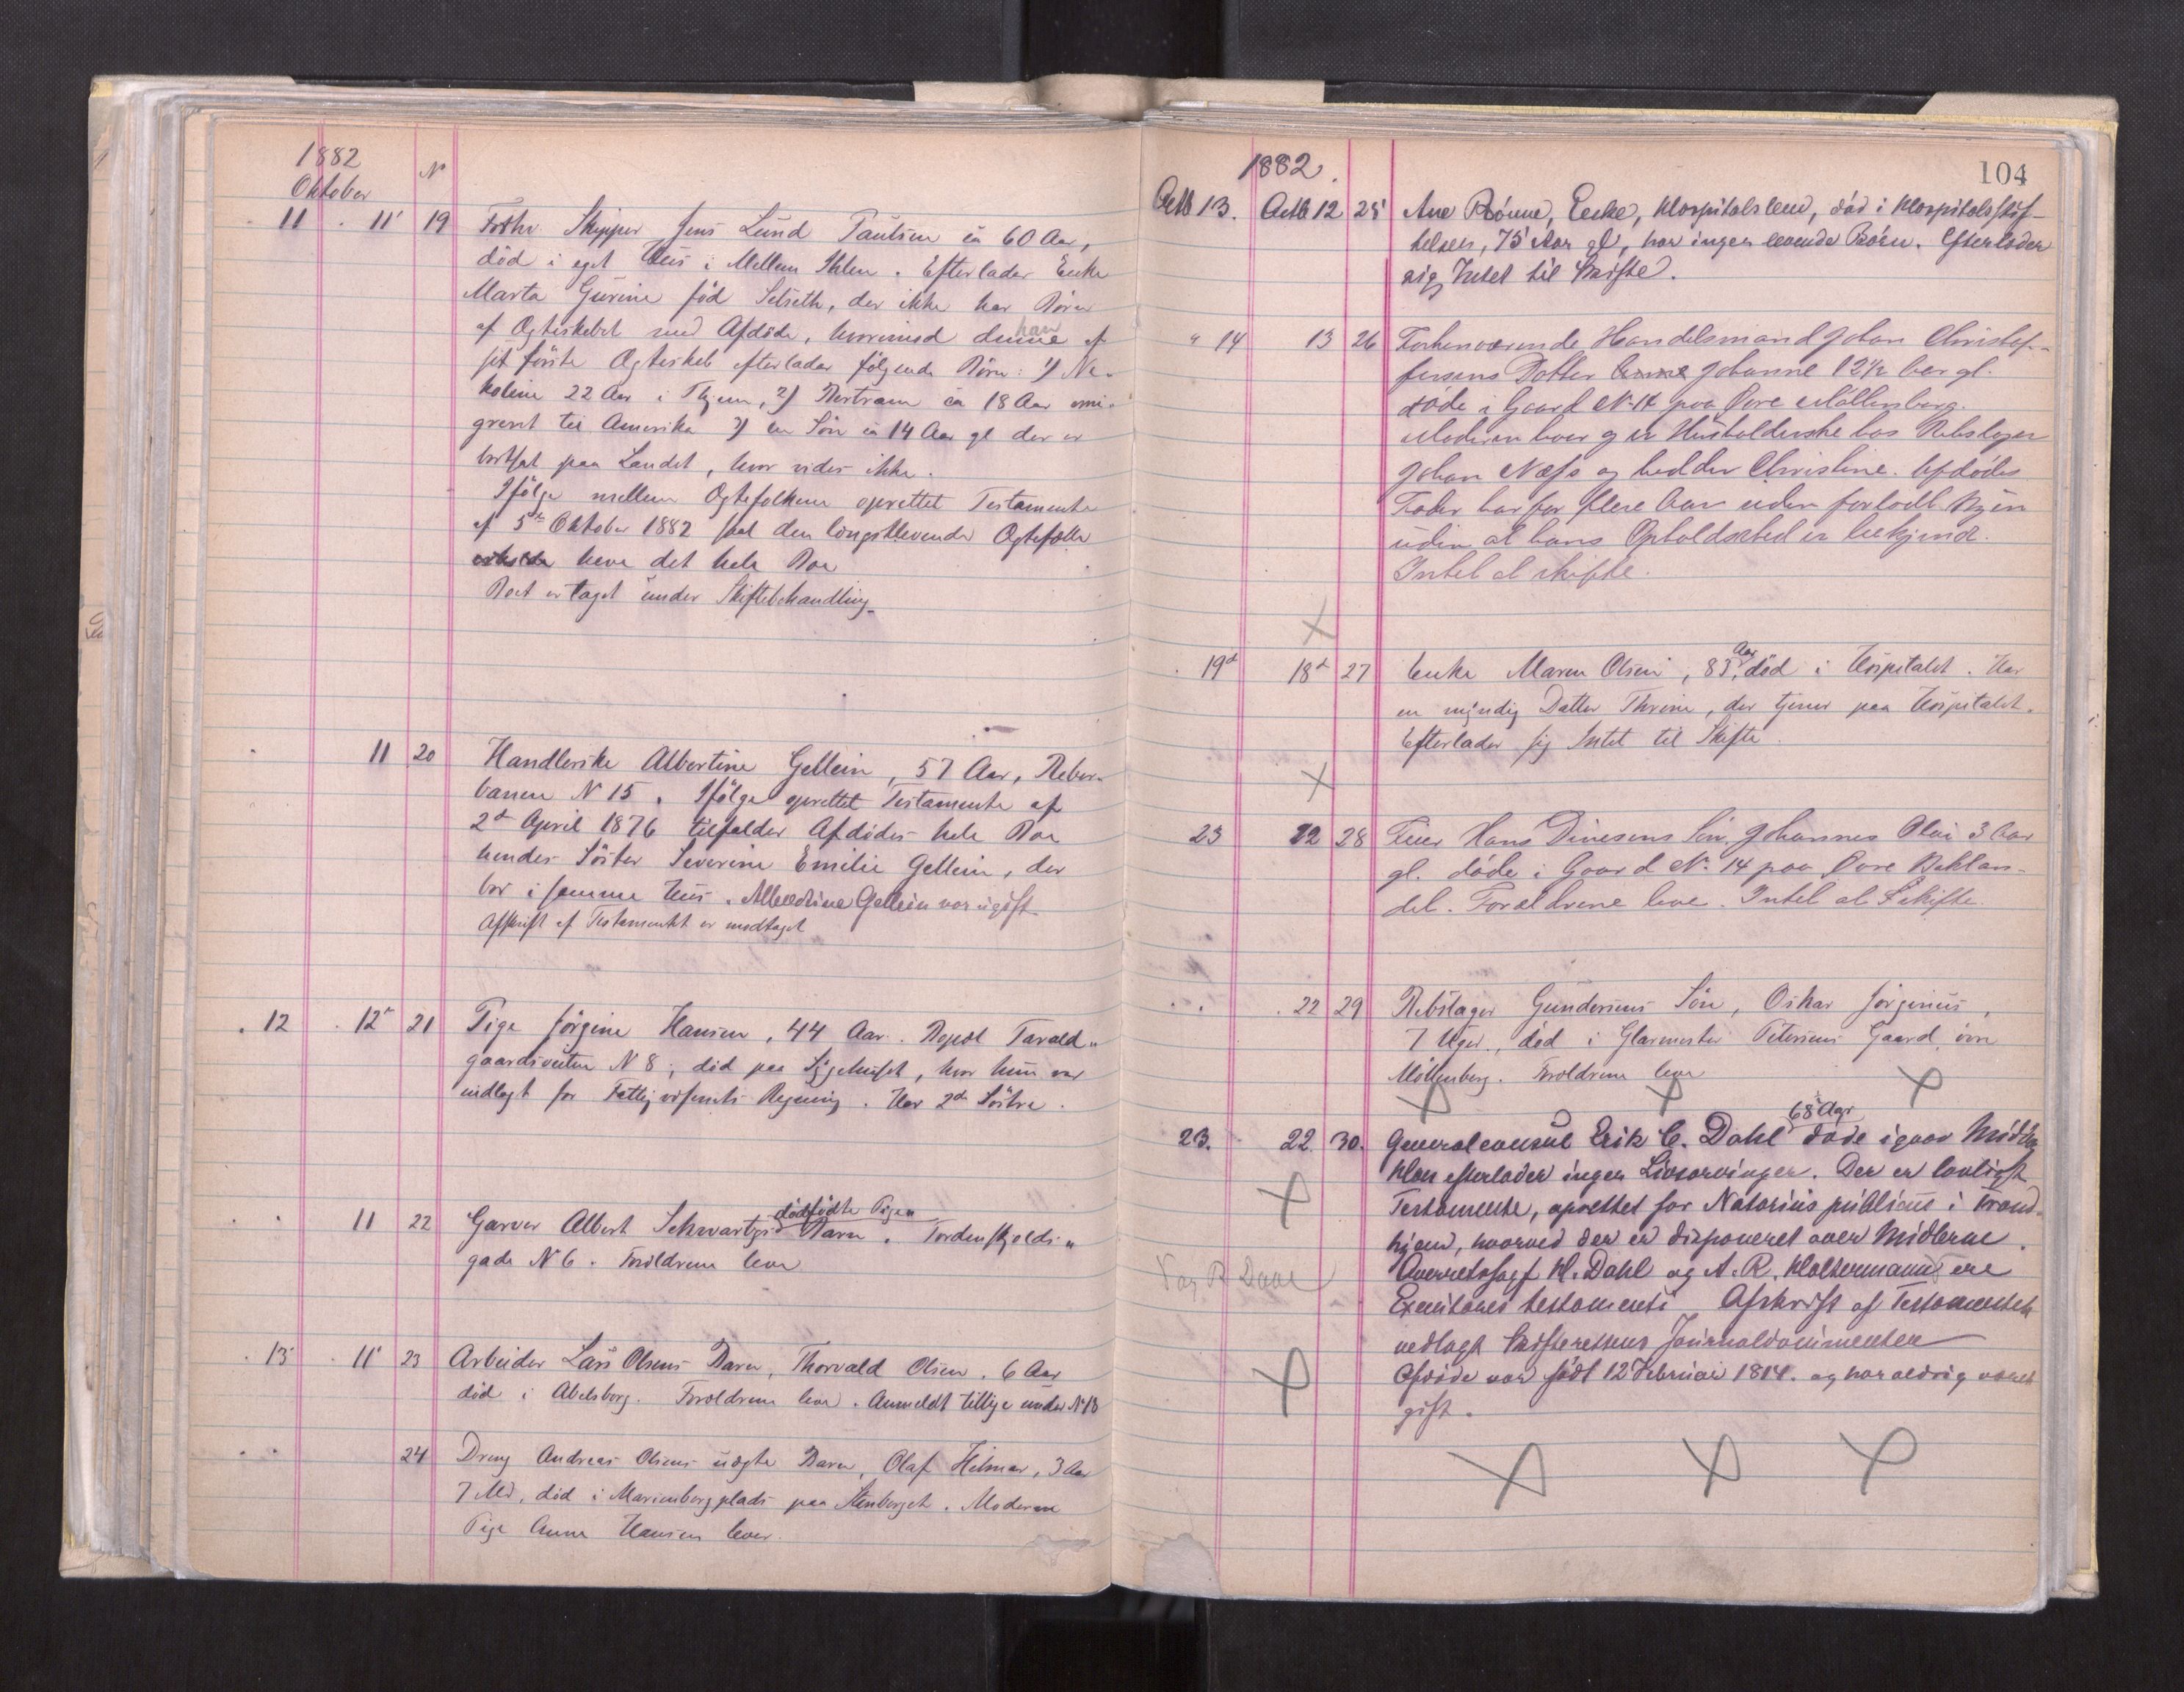 1882
Oktober
N
11 11 19 Fhv. Skipper Jens Lund Paulsen ca 60 Aar,
död i eget Hus i Mellem Ihlen. Efterlader Enke
Marta Gurine föd Selseth, der ikke har Börn
af Ægteskabet med Afdöde, hvorimod denne han af
sit förste Ægteskab efterlader fölgende Börn: 1) Ni-
koline 22 Aar i Thjem, 2) Bertram ca 18 Aar emi-
greret til Amerika 3) en Sön ca 14 Aar gl der er
bortsat paa Landet, hvor vides ikke.
Ifölge mellem Ægtefolkene oprettet Testamente
af 5te Oktober 1882 skal den længstlevende Ægtefælle
have det hele Bo
Boet er taget under Skiftebehandling
11 20 Handlerske Albertine Gellein, 57 Aar, Reber-
banen N 15. Ifölge oprettet Testamente af
2d April 1876 tilfalder Afdödes hele Bo
hendes Söster Severine Emilie Gellein, der
bor i samme Hus. Albertine Gellein var ugift
Afskrift af Testamentet er modtaget
12 12te 21 Pige Jörgine Hansen, 44 Aar. Bopæl Tavald-
gaardsveiten N 8, död paa Sygehuset, hvor hun var
indlagt for Fattigvæsenets Regning. Har 2de Söstre.
11 22 Garver Albert Schwartzs dödfödte Pige Barn. Tordenskjolds-
gade N 6. Forældrene leve
13 11 23 Arbeider Lars Olsens Barn, Thorvald Olsen, 6 Aar
död i Abelsborg. Forældrene leve. Anmeldt tillige under N 18
24 Dreng Andreas Olsens uægte Barn, Olaf Hilmar, 3 Aar
7 Md, död i Marienborgplads paa Stenberget. Moderen
Pige Anna Hansen lever.
1882.
104
Octb 13. Octb 12 25 Ane Rönne, Enke, Hospitalslem, död i Hospitalsstif-
telsen, 75 Aar gl, har ingen levende Börn. Efterlader
sig Intet til Skifte.
" 14 13 26 Forhenværende Handelsmand Johan Christof-
fersens Datter Johanne 12½ Aar gl.
döde i Gaard No 14 paa Övre Möllenberg.
Moderen lever og er Husholderske hos Rebslager
Johan Næss og hedder Christine. Afdödes
Fader har for flere Aar siden forladt Byen
uden at hans Opholdssted er bekjendt.
Intet at skifte.
19d 18d 27 Enke Maren Olsen, 85 Aar, död i Hospitalet. Har
en myndig Datter Thrine, der tjener paa Hospitalet.
Efterlader sig Intet til Skifte
23 22 28 Feier Hans Dinesens Sön, Johannes Olai 3 Aar
gl. döde i Gaard No 14 paa Övre Baklan-
det. Forældrene leve. Intet at Skifte.
22 29 Rebslager Gundersens Sön, Oskar Jörginius,
7 Uger, död i Glarmester Petersens Gaard, övre
Möllenberg. Forældrene leve
23. 22. 30. Generalconsul Erik C. Dahl 68 Aar döde igaar Middag
Han efterlader ingen Livsarvinger. Der er lovligt
Testamente, oprettet for Notarius publicus i Trond-
hjem, hvorved der er disponeret over Midlerne.
Overretssagf H. Dahl og A. R. Haltermann ere
Executores testamenti. Afskrift af Testamentet
vedlagt Skifterettens Journaldocumenter
Afdöde var födt 12 Februar 1814. og har aldrig været
gift.